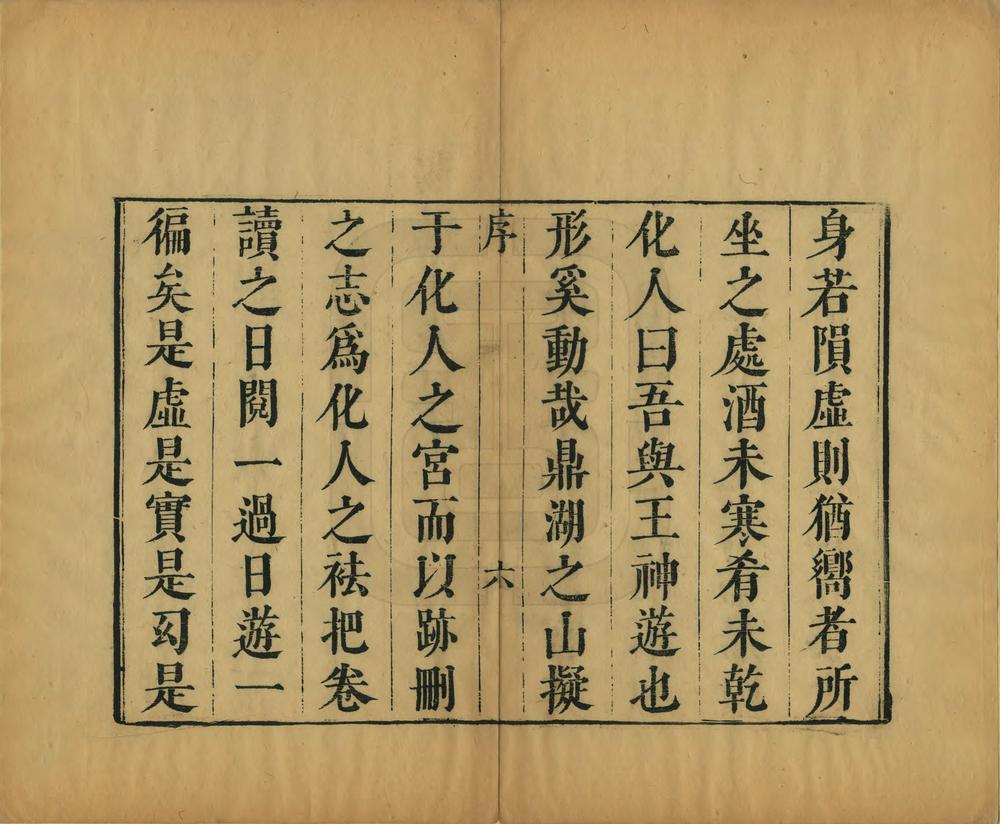 身若隕虛則猶嚮者所
坐之處酒未寒肴未乾
化人曰吾與王神遊也
形奚動哉鼎湖之山擬
序 六
于化人之宮而以跡刪
之志爲化人之袪把卷
讀之日閱一過日遊一
徧矣是虛是實是幻是